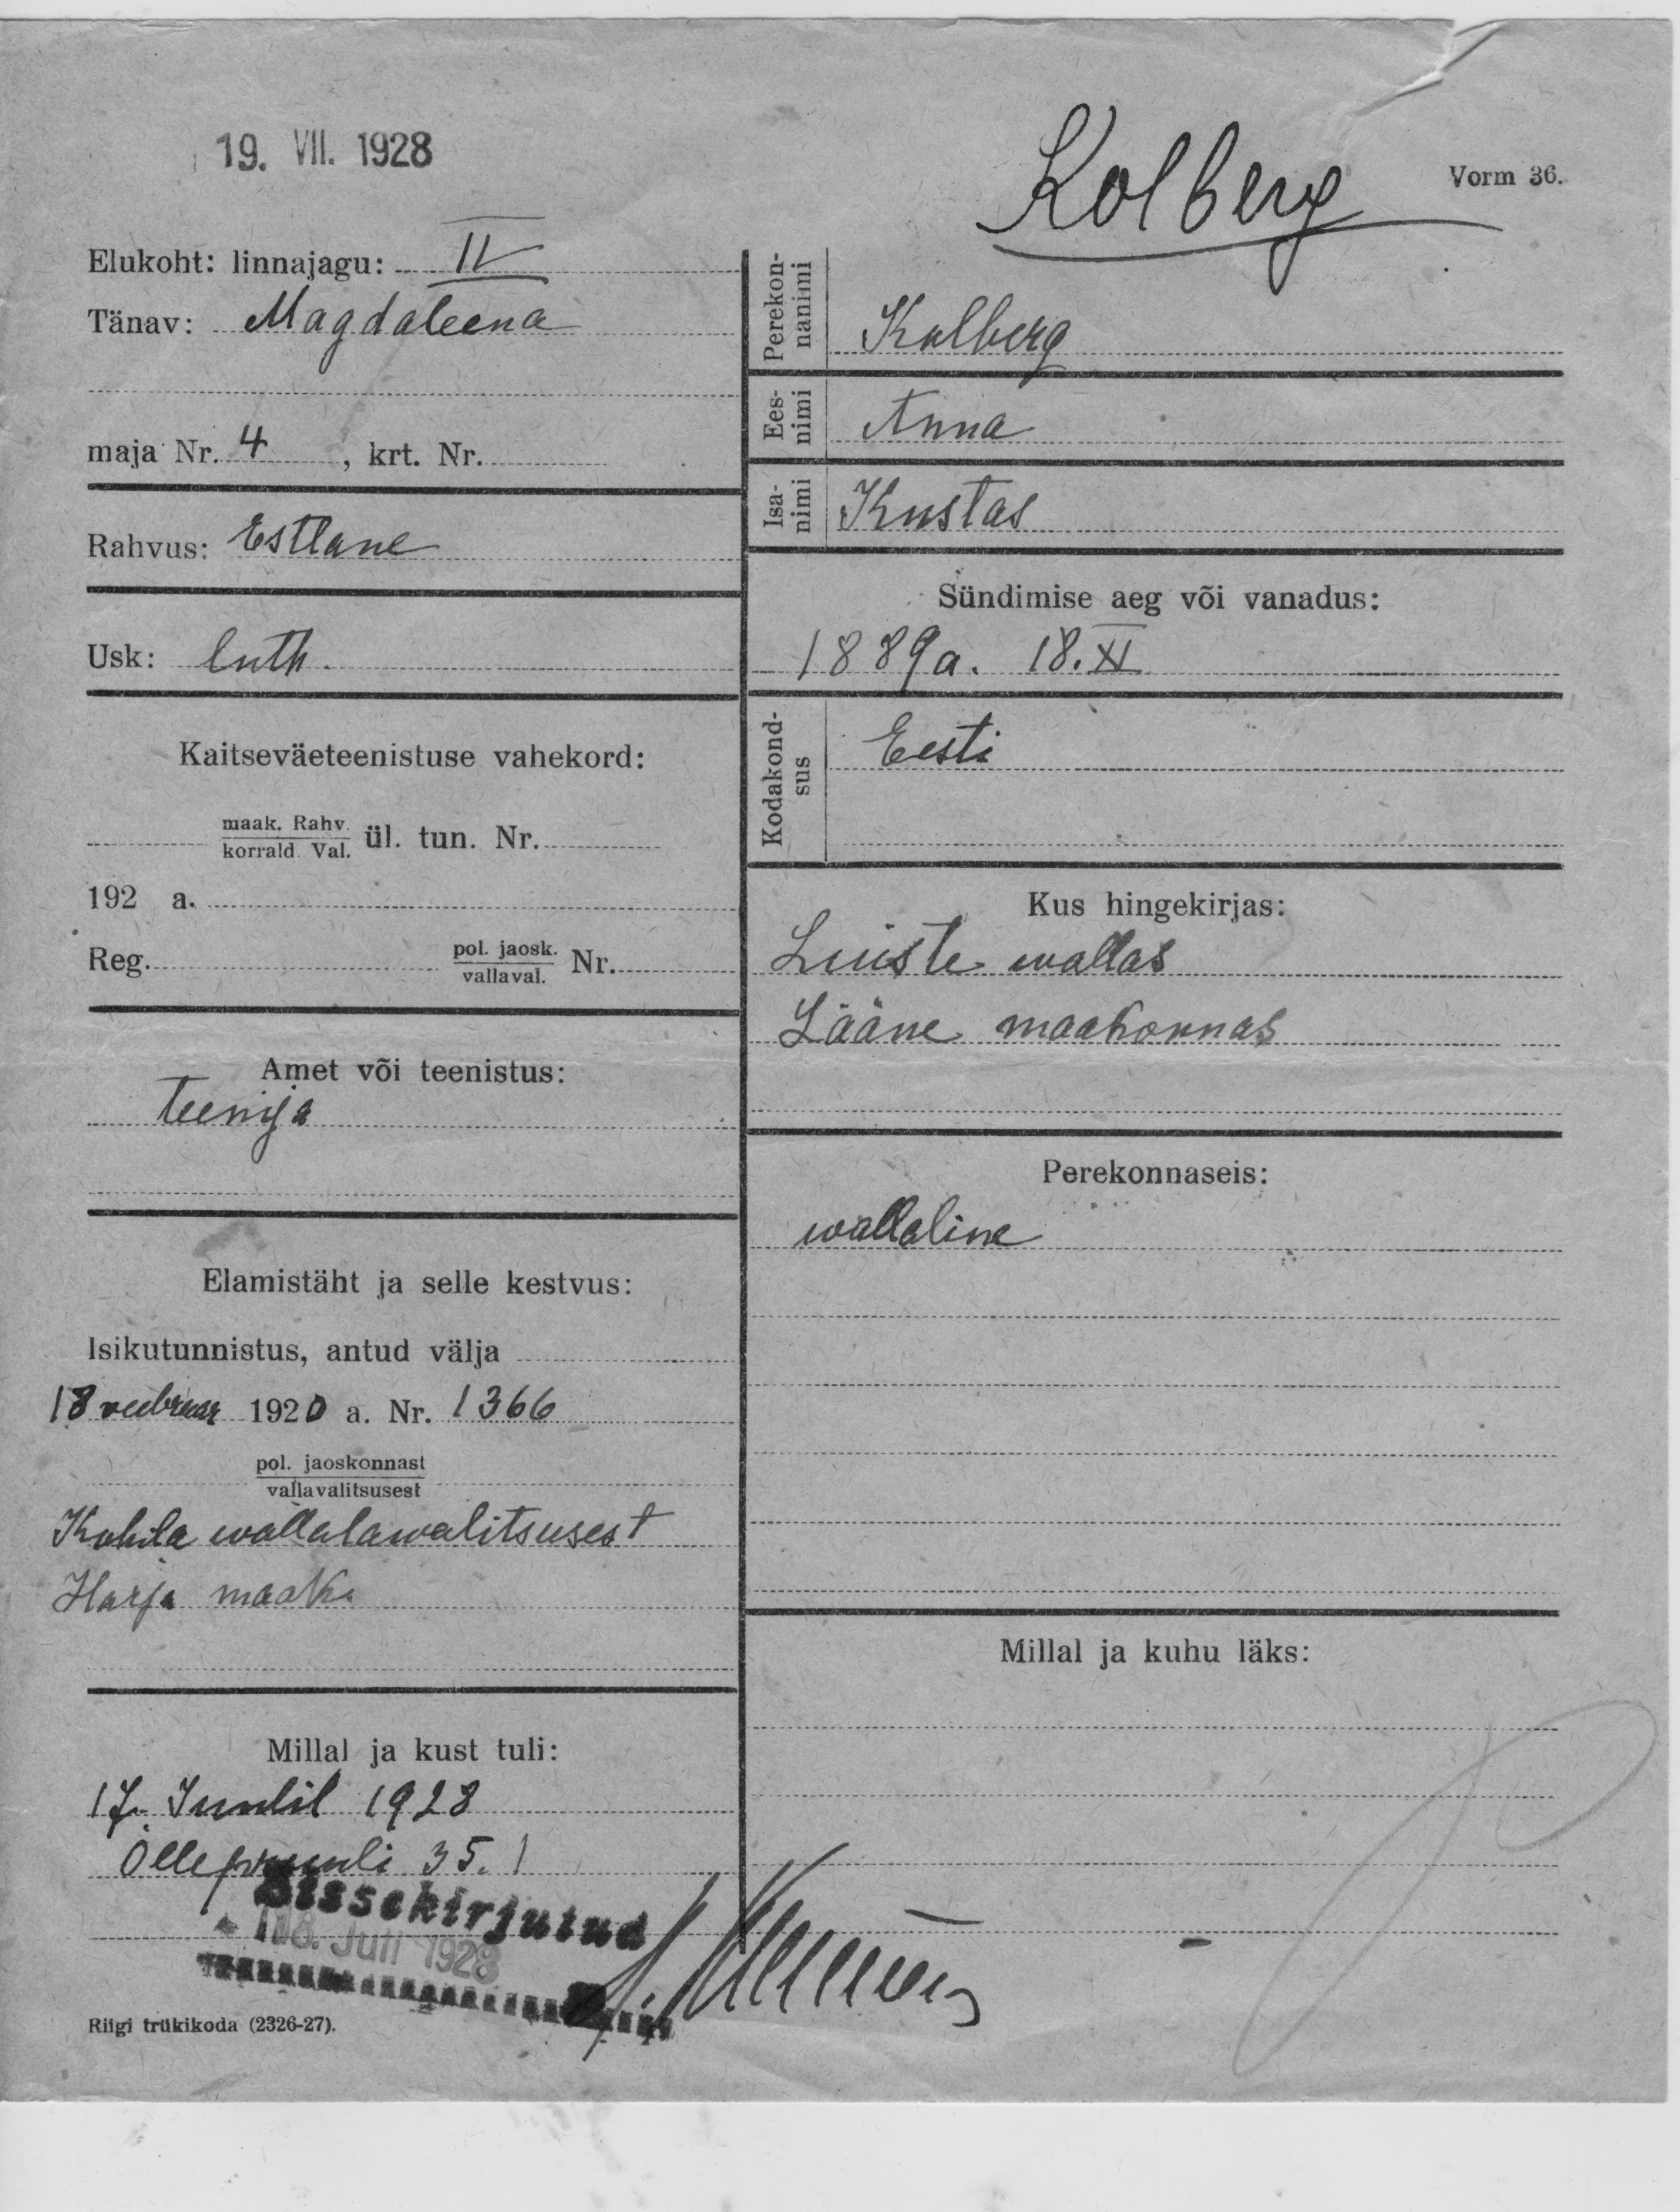 19. VII. 1928
Kolberg
Vorm 36.
Elukoht: linnajagu: IV
Tänav: Magdaleena
maja Nr. 4, krt. Nr.
Rahvus: Estlane
Usk: luth.
Kaitseväeteenistuse vahekord:
maak. Rahv.
korrald. Val. ül. tun. Nr.
192 a.
Reg. pol. jaosk. Nr.
vallaval.
Amet või teenistus:
teenija
Elamistäht ja selle kestvus:
Isikutunnistus, antud välja
18 veebruar 1920 a. Nr. 1366
pol. jaoskonnast
vallavalitsusest
Kohila wallalawalitsusest
Harju maak.
Millal ja kust tuli:
17. Juulil 1928
Õllepruuli 35.1
Sissekirjutud
18. Juli 1928
Riigi trükikoda (2326-27).
Perekon-
nanimi
Kolberg
Ees-
nimi
Anna
Isa-
nimi
Kustas
Sündimise aeg või vanadus:
1889a. 18.XI
Kodakond-
sus
Eesti
Kus hingekirjas:
Luiste wallas
Lääne maakonnas
Perekonnaseis:
wallaline
Millal ja kuhu läks: